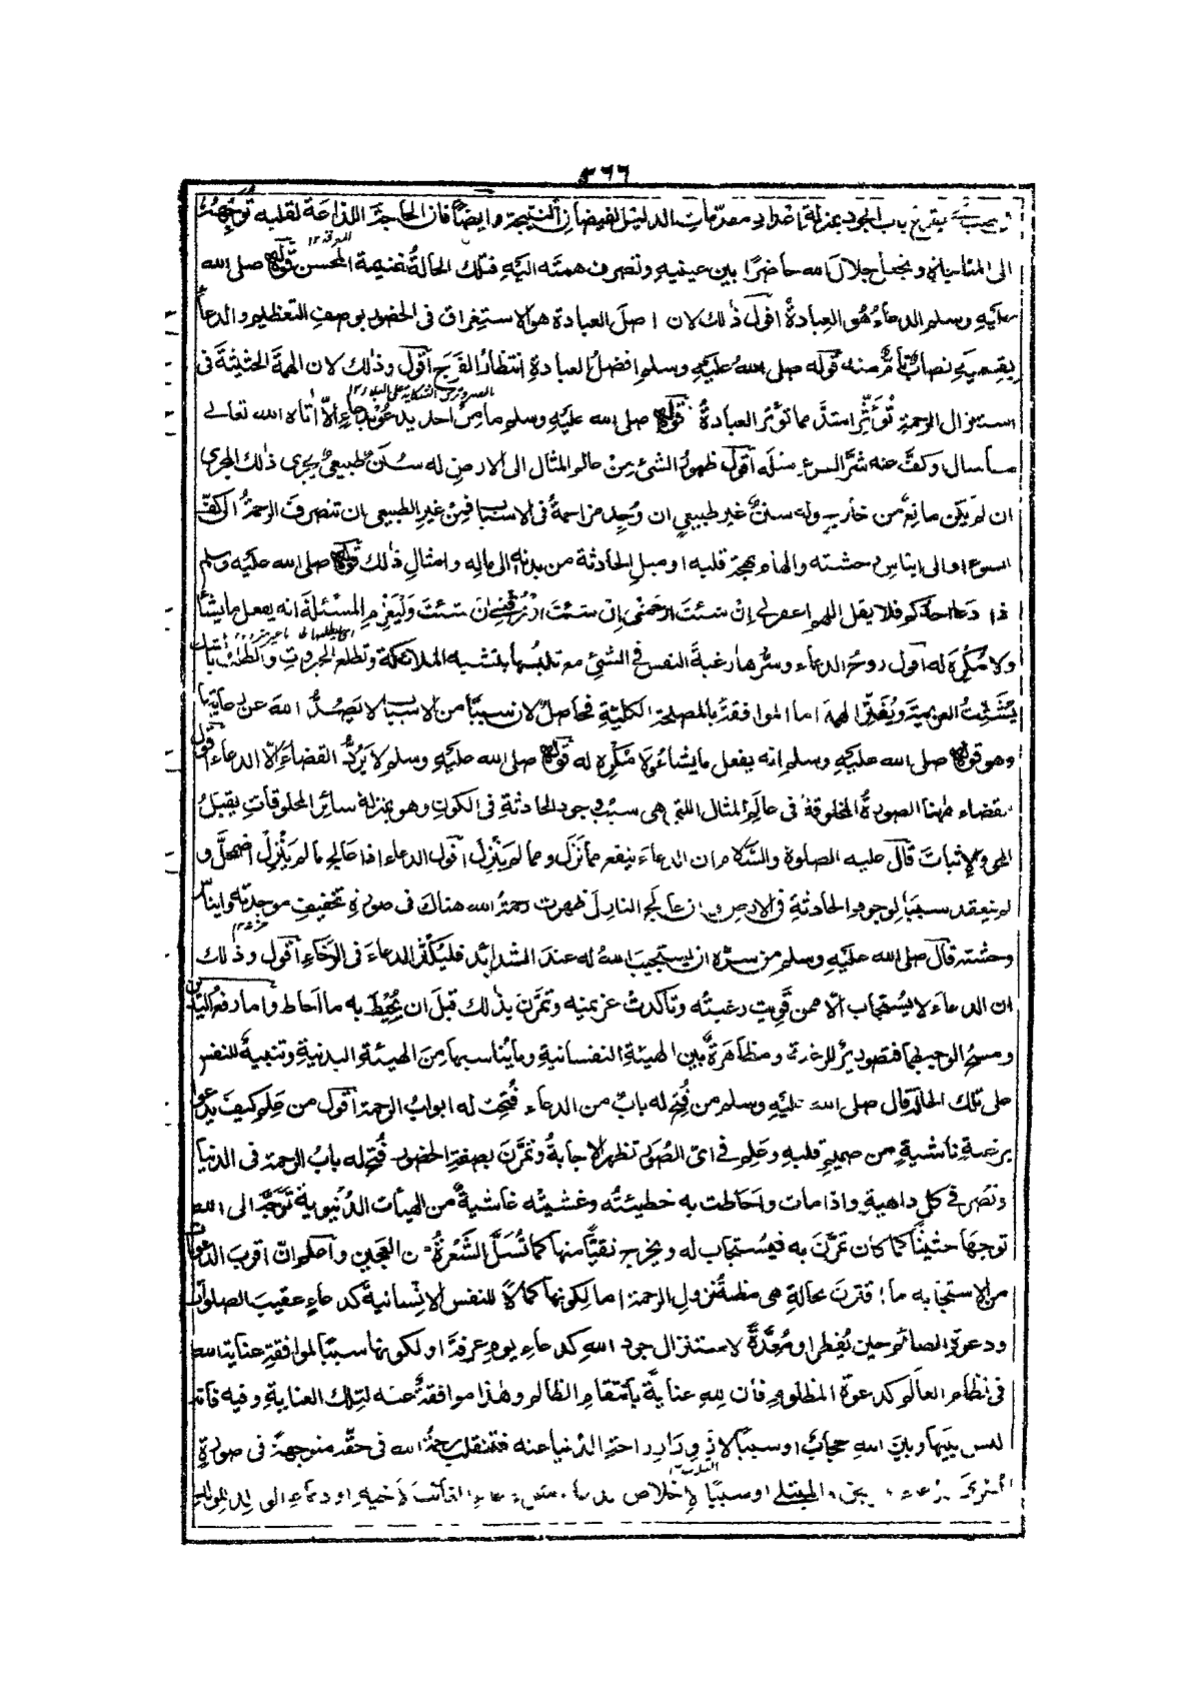 ٣٦٦
باب الجود بمنزلة إعداد مقدمات الدليل لفيضان النتيجة وايضًا فان الحاجة اللذاعة لقلبه توجهه
الى المناجاة و تجعل جلال الله حاضرًا بين عينيه وتصرف همته اليه فتلك الحالة غنيمة المحسن قوله صلى الله
عليه وسلم الدعاء هو العبادة اقول ذلك لان اصل العبادة هو الاستغراق فى الحضور بوصف التعظيم والدعاء
بقسميه نصاب تام منه قوله صلى الله عليه وسلم افضل العبادة انتظار الفرج اقول وذلك لان الهمة الحثيثة فى
استنزال الرحمة تؤثر اشد مما تؤثر العبادة قوله صلى الله عليه وسلم ما من احد يدعو بدعاء الا اٰتاه الله تعالى
ما سال او كف عنه شر السوء مثله اقول ظهور الشئ من عالم المثال الى الارض له سنن طبيعى يجرى ذلك المجرى
ان لم يكن مانع من خارج وله سنن غير طبيعى ان وجد مزاحمة فى الاسباب فمن غير الطبيعى ان تنصرف الرحمة الى كف
السوء او الى ايناس وحشته والهام بهجة قلبه او ميل الحادثة من بدنه الى ماله وامثال ذلك قوله صلى الله عليه وسلم
اذا دعا احدكم فلا يقل اللهم اغفر لى ان شئت ارحمنى ان شئت ارزقنى ان شئت وليعزم المسئلة انه يفعل ما يشاء
ولا مكره له اقول روح الدعاء وسرها رغبة النفس فى الشئ مع تلبسها بتشبه الملائكة وتطلع الجبروت والطلب بالشك
يشتت العزيمة ويفتر الهمة اما الموافقة بالمصلحة الكلية فحاصل لان سببًا من الاسباب لا يصد الله عن رعايتها
وهو قوله صلى الله عليه وسلم انه يفعل ما يشاء ولا مكره له قوله صلى الله عليه وسلم لا يرد القضاء الا الدعاء اقول
القضاء ههنا الصورة المخلوقة فى عالم المثال التى هى سبب وجود الحادثة فى الكون وهو بمنزلة سائر المخلوقات يقبل
المحو والإثبات قال عليه الصلوة والسلام ان الدعاء ينفع مما نزل ومما لم ينزل اقول الدعاء اذا عالج ما لم ينزل اضمحل و
لم ينعقد سببًا لوجود الحادثة فى الارض وان عالج النازل ظهرت رحمة الله هناك فى صورة تخفيف موجدته وايناس
وحشته قال صلى الله عليه وسلم من سره ان يستجيب الله له عند الشدائد فليكثر الدعاء فى الرخاء اقول وذلك
ان الدعاء لا يستجاب الا ممن قويت رغبته وتأكدت عزيمته وتمرن بذلك قبل ان يحيط به ما احاط واما رفع اليدين
ومسح الوجه بهما فتصوير للرغبة ومظاهرة بين الهيئة النفسانية وما يناسبها من الهيئة البدنية وتنبيه للنفس
على تلك الحالة قال صلى الله عليه وسلم من فتح له باب من الدعاء فتحت له ابواب الرحمة اقول من علم كيف يدعو
برغبة ناشية من صميم قلبه وعلم فى اى الصور تظهر الاجابة وتمرن بصفة الحضور فتح له باب الرحمة فى الدنيا
ونصر فى كل داهية واذا مات واحاطت به خطيئته وغشيته غاشية من الهيأت الدنيوية توجه الى الله
توجهًا حثيثًا كما كان تمرن به فيستجاب له ويخرج نقيًّا منها كما تسل الشعرة من العجين واعلم ان اقرب الدعوات
من الاستجابة ما اقترن بحالة هى مظنة نزول الرحمة اما لكونها كمالًا للنفس الانسانية كدعاء عقيب الصلوات
ودعوة الصائم حين يفطر او معدة لاستنزال جود الله كدعاء يوم عرفة او لكونها سببًا لموافقة عناية الله
فى نظام العالم كدعوة المظلوم فان لله عناية بانتقام الظالم وهذا موافقة عنه لتلك العناية وفيه فانه
ليس بينها وبين الله حجاب او سببًا لازورار راحة الدنيا عنه فتنقلب رحمة الله فى حقه متوجهة فى صورة
المبتلى او سببًا لإخلاص الغائب لاخيه او دعاء الوالد